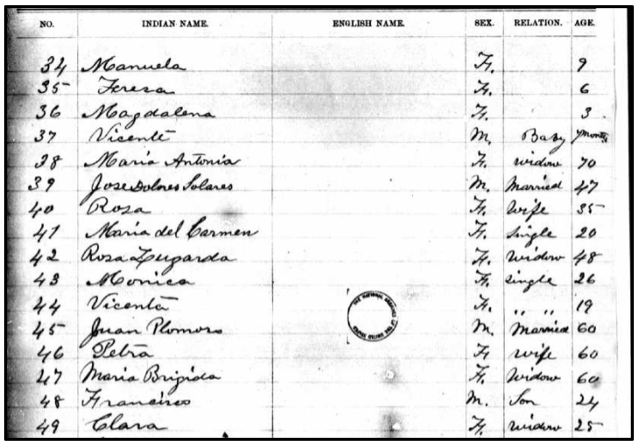 NO. INDIAN NAME. ENGLISH NAME. SEX. RELATION. AGE.
34 Manuela F. 9
35 Teresa F. 6
36 Magdalena F. 3
37 Vicente M. Baby months
38 Maria Antonia F. widow 70
39 Jose Dolores Solares M. Married 47
40 Rosa F. wife 35
41 Maria del Carmen F. single 20
42 Rosa Lugarda F. widow 48
43 Monica F. single 26
44 Vicenta F. " " 19
45 Juan M. Married 60
46 Petra F. wife 60
47 Maria Brigida F. Widow 60
48 Francisco M. Son 24
49 Clara F. widow 25